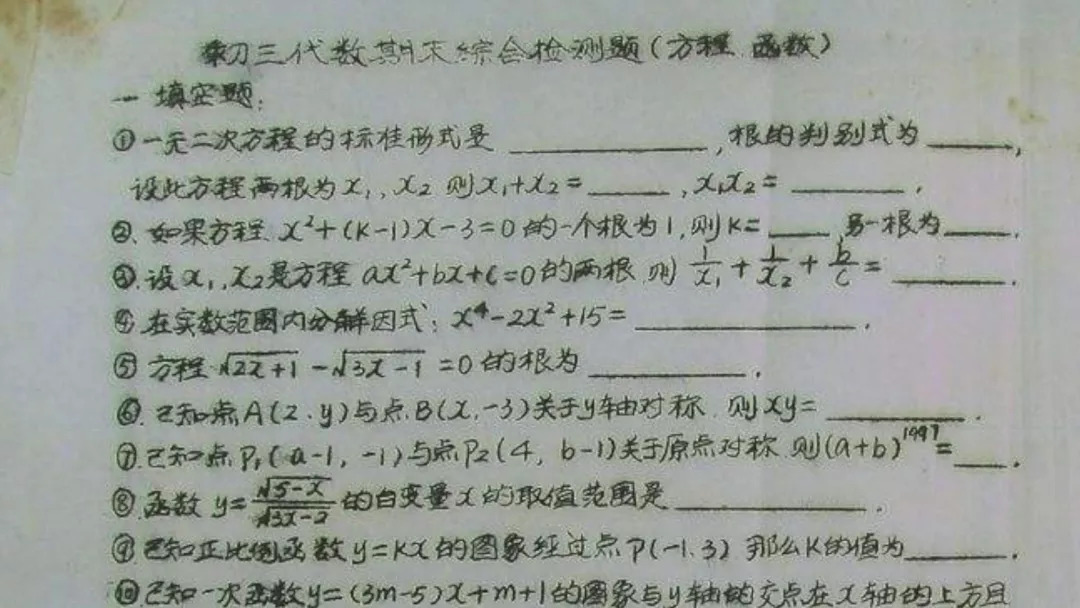 初三代数期末综合检测题(方程 函数)
一 填空题:
①一元二次方程的标准形式是________,根的判别式为____,
设此方程两根为x₁,x₂则x₁+x₂=____,x₁x₂=____.
②.如果方程x²+(k-1)x-3=0的一个根为1,则k=____另一根为____.
③.设x₁,x₂是方程ax²+bx+c=0的两根则1/x₁+1/x₂+b/c=____.
④在实数范围内分解因式:x⁴-2x²+15=________.
⑤方程√2x+1-√3x-1=0的根为________.
⑥.已知点A(2.y)与点B(x,-3)关于y轴对称.则xy=____.
⑦.已知点P₁(a-1,-1)与点P₂(4,b-1)关于原点对称则(a+b)¹⁹⁹⁷=____.
⑧.函数y=√5-x/√3x-2的自变量x的取值范围是________.
⑨已知正比例函数y=kx的图象经过点P(-1.3)那么k的值为____.
⑩已知一次函数y=(3m-5)x+m+1的图象与y轴的交点在x轴的上方且